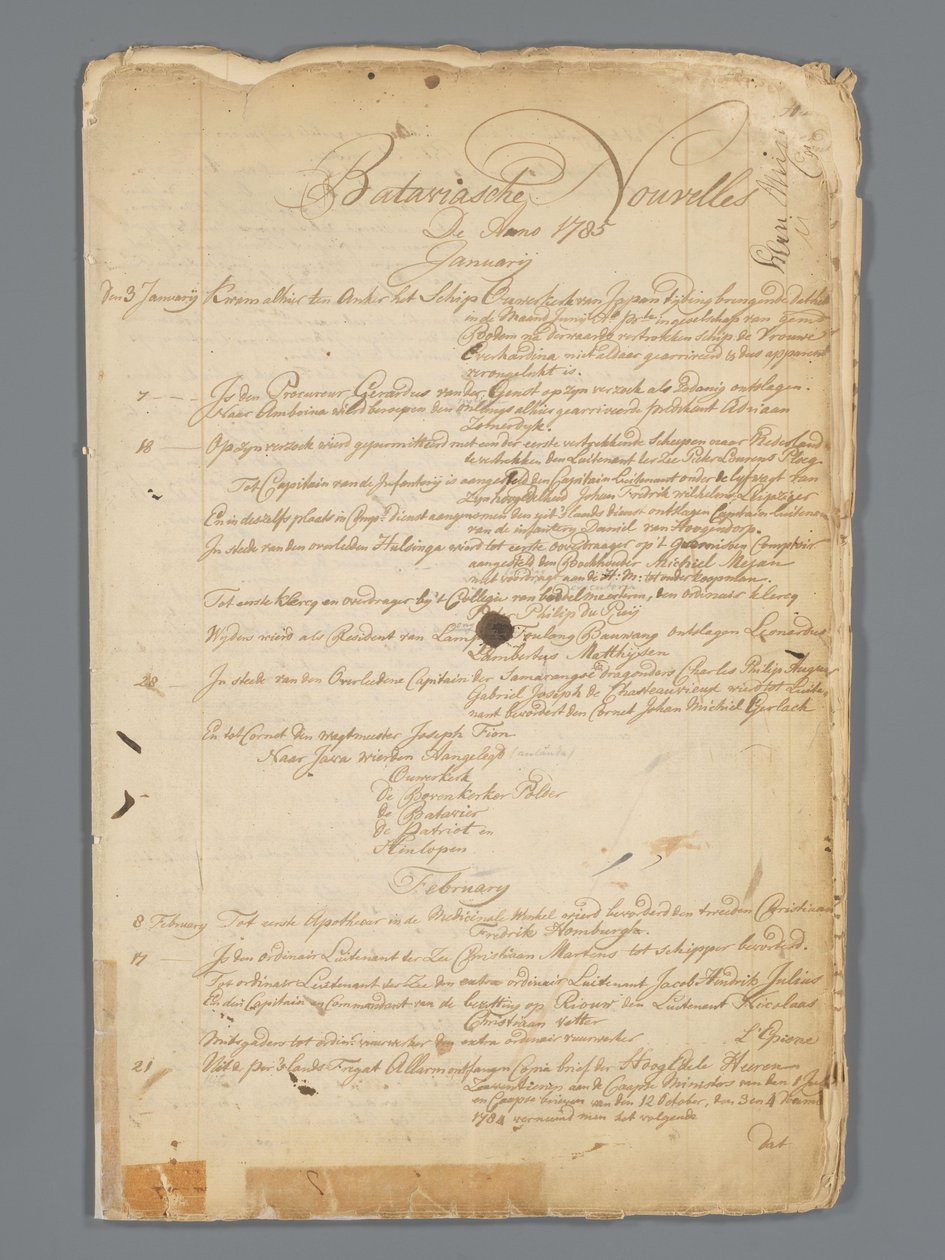 Bataviasche Nouvelles
De Anno 1785
Januarij
den 3 Januarij Kwam alhier ten Anker het Schip Ouwerkerk van Japan tijding brengende dat het
in de Maand Junij in geselschap van
Bodem na derwaards vertrokken schip de Vrouwe
Everhardina niet aldaer gearriveerd & dus apparent
verongelukt is.
7 Is den Procureur Gerardus van der Genst op zyn verzoek als zodanig ontslagen.
Naar Ambrina wierd beroepen den onlangs alhier gearriveerde predikant Adriaan
Zomerdyk.
18 Op zyn verzoek wierd gepermitteerd met een der eerste vertrekkende scheepen naar Nederland
te vertrekken den Luitenant ter Zee Pieter Lourens Ploeg
Tot Capitain van de Infanterij is aangesteld den Capitain Luitenant onder de lyfwagt van
zyn hoog Edelheid Johan Fredrik wilhelm Leipziger
En in deszelfs plaats in Comp:s dienst aangenomen den uit 's lands dienst ontslagen Capitain luitenant
van de infanterij Daniel van Hoogendorp.
In stede van den overleden Hulsinga wierd tot eerste overdraager op 't Guarnisoen Comptoir
aangesteld den Boekhouder Michiel Mejan
met voordragt aan de H: M: tot onderkoopman.
Tot eerste klercq en overdrager by 't Collegie van boedelmeesteren, den ordinair klercq
Philip du Puij
Wyders wierd als Resident van Lampong Toulang Bauwang ontslagen Leonardus
Lambertus Matthijsen
28 In stede van den Overledene Capitain der Samarangse dragonders Charles Philip August
Gabriel Joseph de Chasteauvieux wierd tot Luite-
nant bevordert den Cornet Johan Michiel Gerlach
En tot Cornet den wagtmeester Joseph Fion
Naar Java wierden Aangelegd
Ouwerkerk
de Bovenkerker Polder
de Batavier
de Patriot en
Hinlopen
February
8 February Tot eerste Apothecar in de Medicinale Winkel wierd bevorderd den tweeden Christiaan
Fredrik Homburg.
17 Is den ordinair Luitenant ter Zee Christiaan Martens tot schipper bevorderd.
Tot ordinair Luitenant ter Zee den extra ordinair Luitenant Jacob Hindrik Julius
En den Capitain en Commandant van de bezetting op Riouw den Luitenant Nicolaas
Christiaan Vetter
mitsgaders tot ordin:r vuurwerker den extra ordinair vuurwerker L'Epione
21 Uit de per 's lands Fregat Allarm ontfangen Copia brief der Hoog Edele Heeren
Zeventienen aan de Caapse Ministers van den 1 Julij
en Caapse brieven van den 12 October, den 3 en 4
1784 verneemd men het volgende
dat